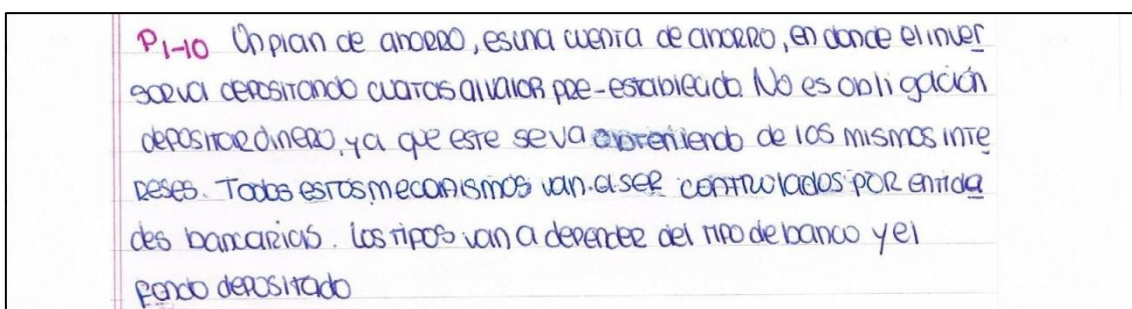 P1-10 Un plan de ahorro, es una cuenta de ahorro, en donde el inver
sor va depositando cuotas al valor pre-establecido. No es obligación
depositar dinero, ya que este se va obteniendo de los mismos inte
reses. Todos estos mecanismos van a ser controlados por entida
des bancarias. Los tipos van a depender del tipo de banco y el
fondo depositado